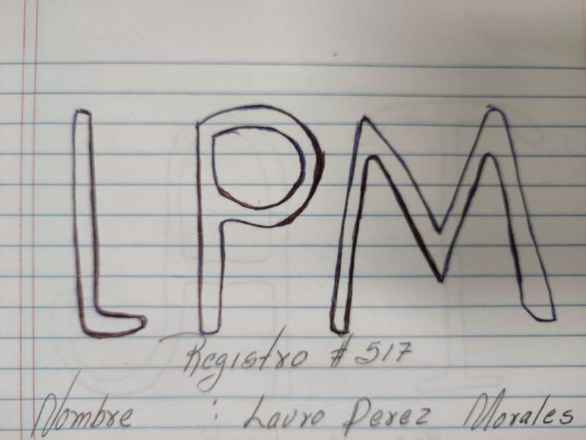 LPM
Registro # 517
Nombre : Lauro Perez Morales